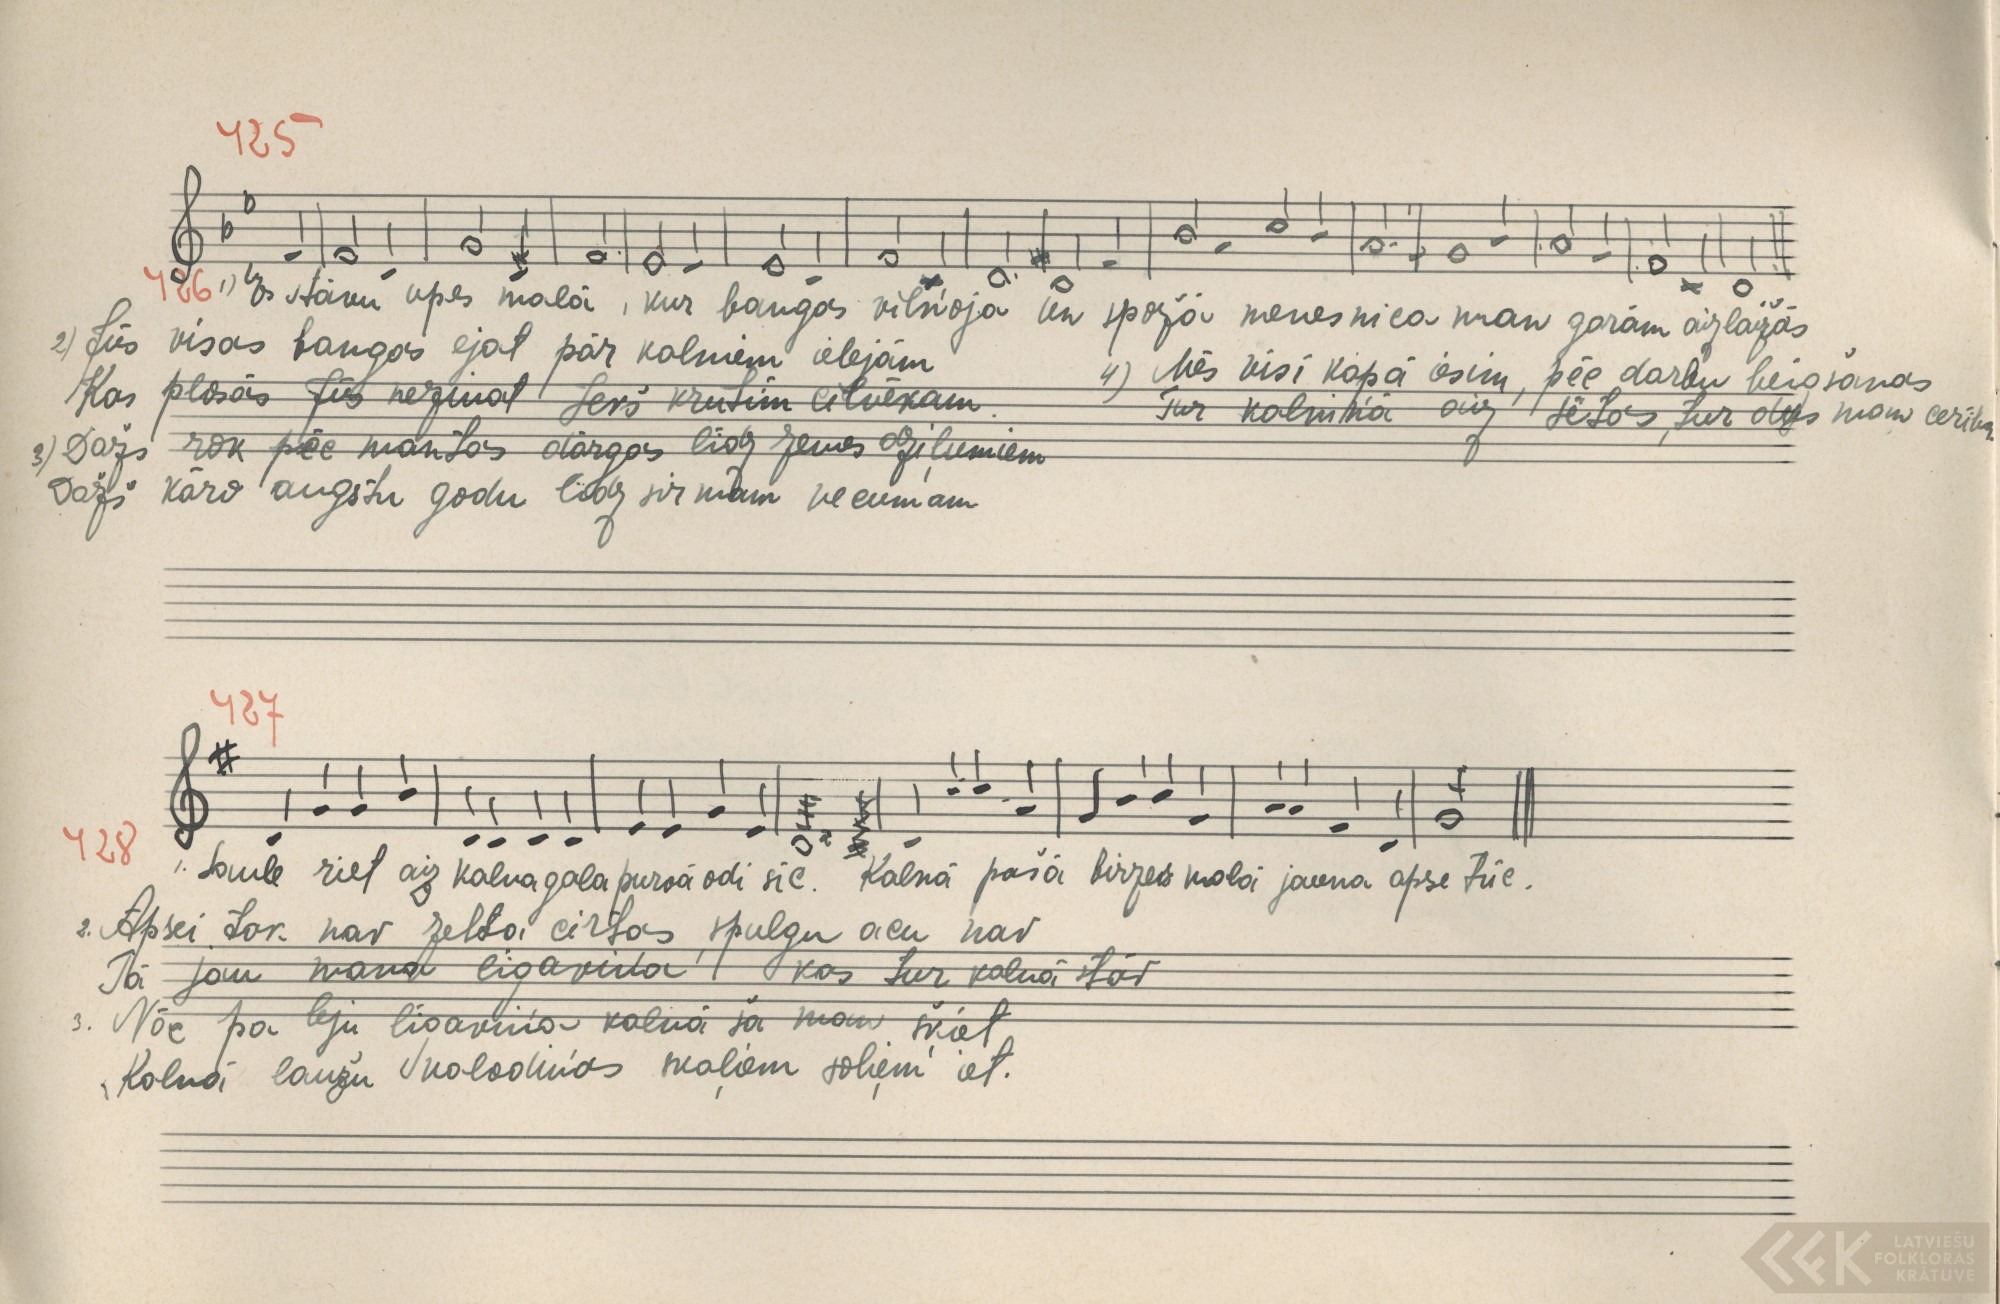 425
426 1) Es stāvu upes malā, kur bangas viļņoja un spožā menesnica man garām aizlaižās
2) Jūs visas bangas ejat pār kalniem ielejām
Kas plosās jūs nezinat šeiš krūtīm cilvēkam.
3) Dažs rok pēc mantas dārgas līdz zemes dziļumiem
Dažs kāro augstu godu līdz sirmam vecumam
4) Mēs visi kopā iesim, pēc darbu beigšanas
Tur kalniņā aiz sētas, tur dus man cerības
427
428
1. Saule riet aiz kalna gala purvā odi sīc. Kalnā pašā birzes malā jauna apse tūc.
2. Apsei tov. nav zelta cirtas, spulgu acu nav
Tā jau mana līgaviņa, kas tur kalnā stāv
3. Nāc pa leju līgaviņa kalnā sā man šķiet
Kalnā laužu skalodiņas skaļiem soļiem iet.
LATVIEŠU
FOLKLORAS
KRĀTUVE